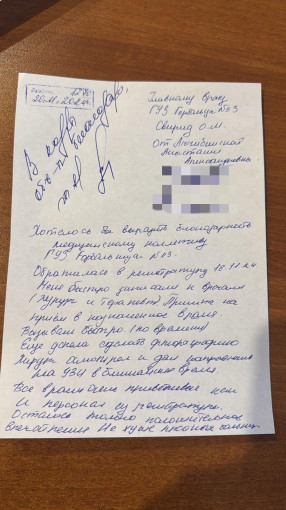 26.11.2024
В кадры
Главному врачу
ГУЗ Горбольница №3
Свирид О.М.
От
Анастасии
Александровны
Хотелось бы выразить благодарность
медицинскому коллективу
ГУЗ Горбольница №3.
Обратилась в регистратуру 18.11.24
Меня быстро записали к врачам
(Хирург и терапевт) Пришла на
приём в назначенное время.
Вызвали быстро (по времени)
Ещё успела сделать флюорографию
Хирург осмотрел и дал направления
на УЗИ в ближайшее время.
Все врачи очень приветливые
И персонал регистратуры.
Осталось только положительное
впечатление Не хуже платных